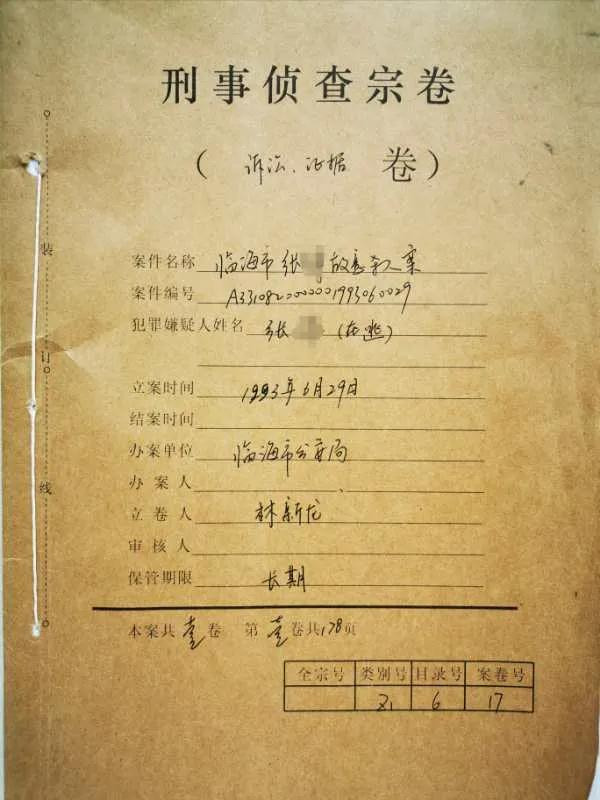 刑事侦查宗卷
（诉讼、证据 卷）
案件名称 临海市张 故意杀人案
案件编号 A3310820000001993060029
犯罪嫌疑人姓名 张 （在逃）
立案时间 1993年6月29日
结案时间
办案单位 临海市公安局
办案人
立卷人 林新龙
审核人
保管期限 长期
本案共壹卷 第壹卷共178页
全宗号 类别号 目录号 案卷号
6 17
装
订
线